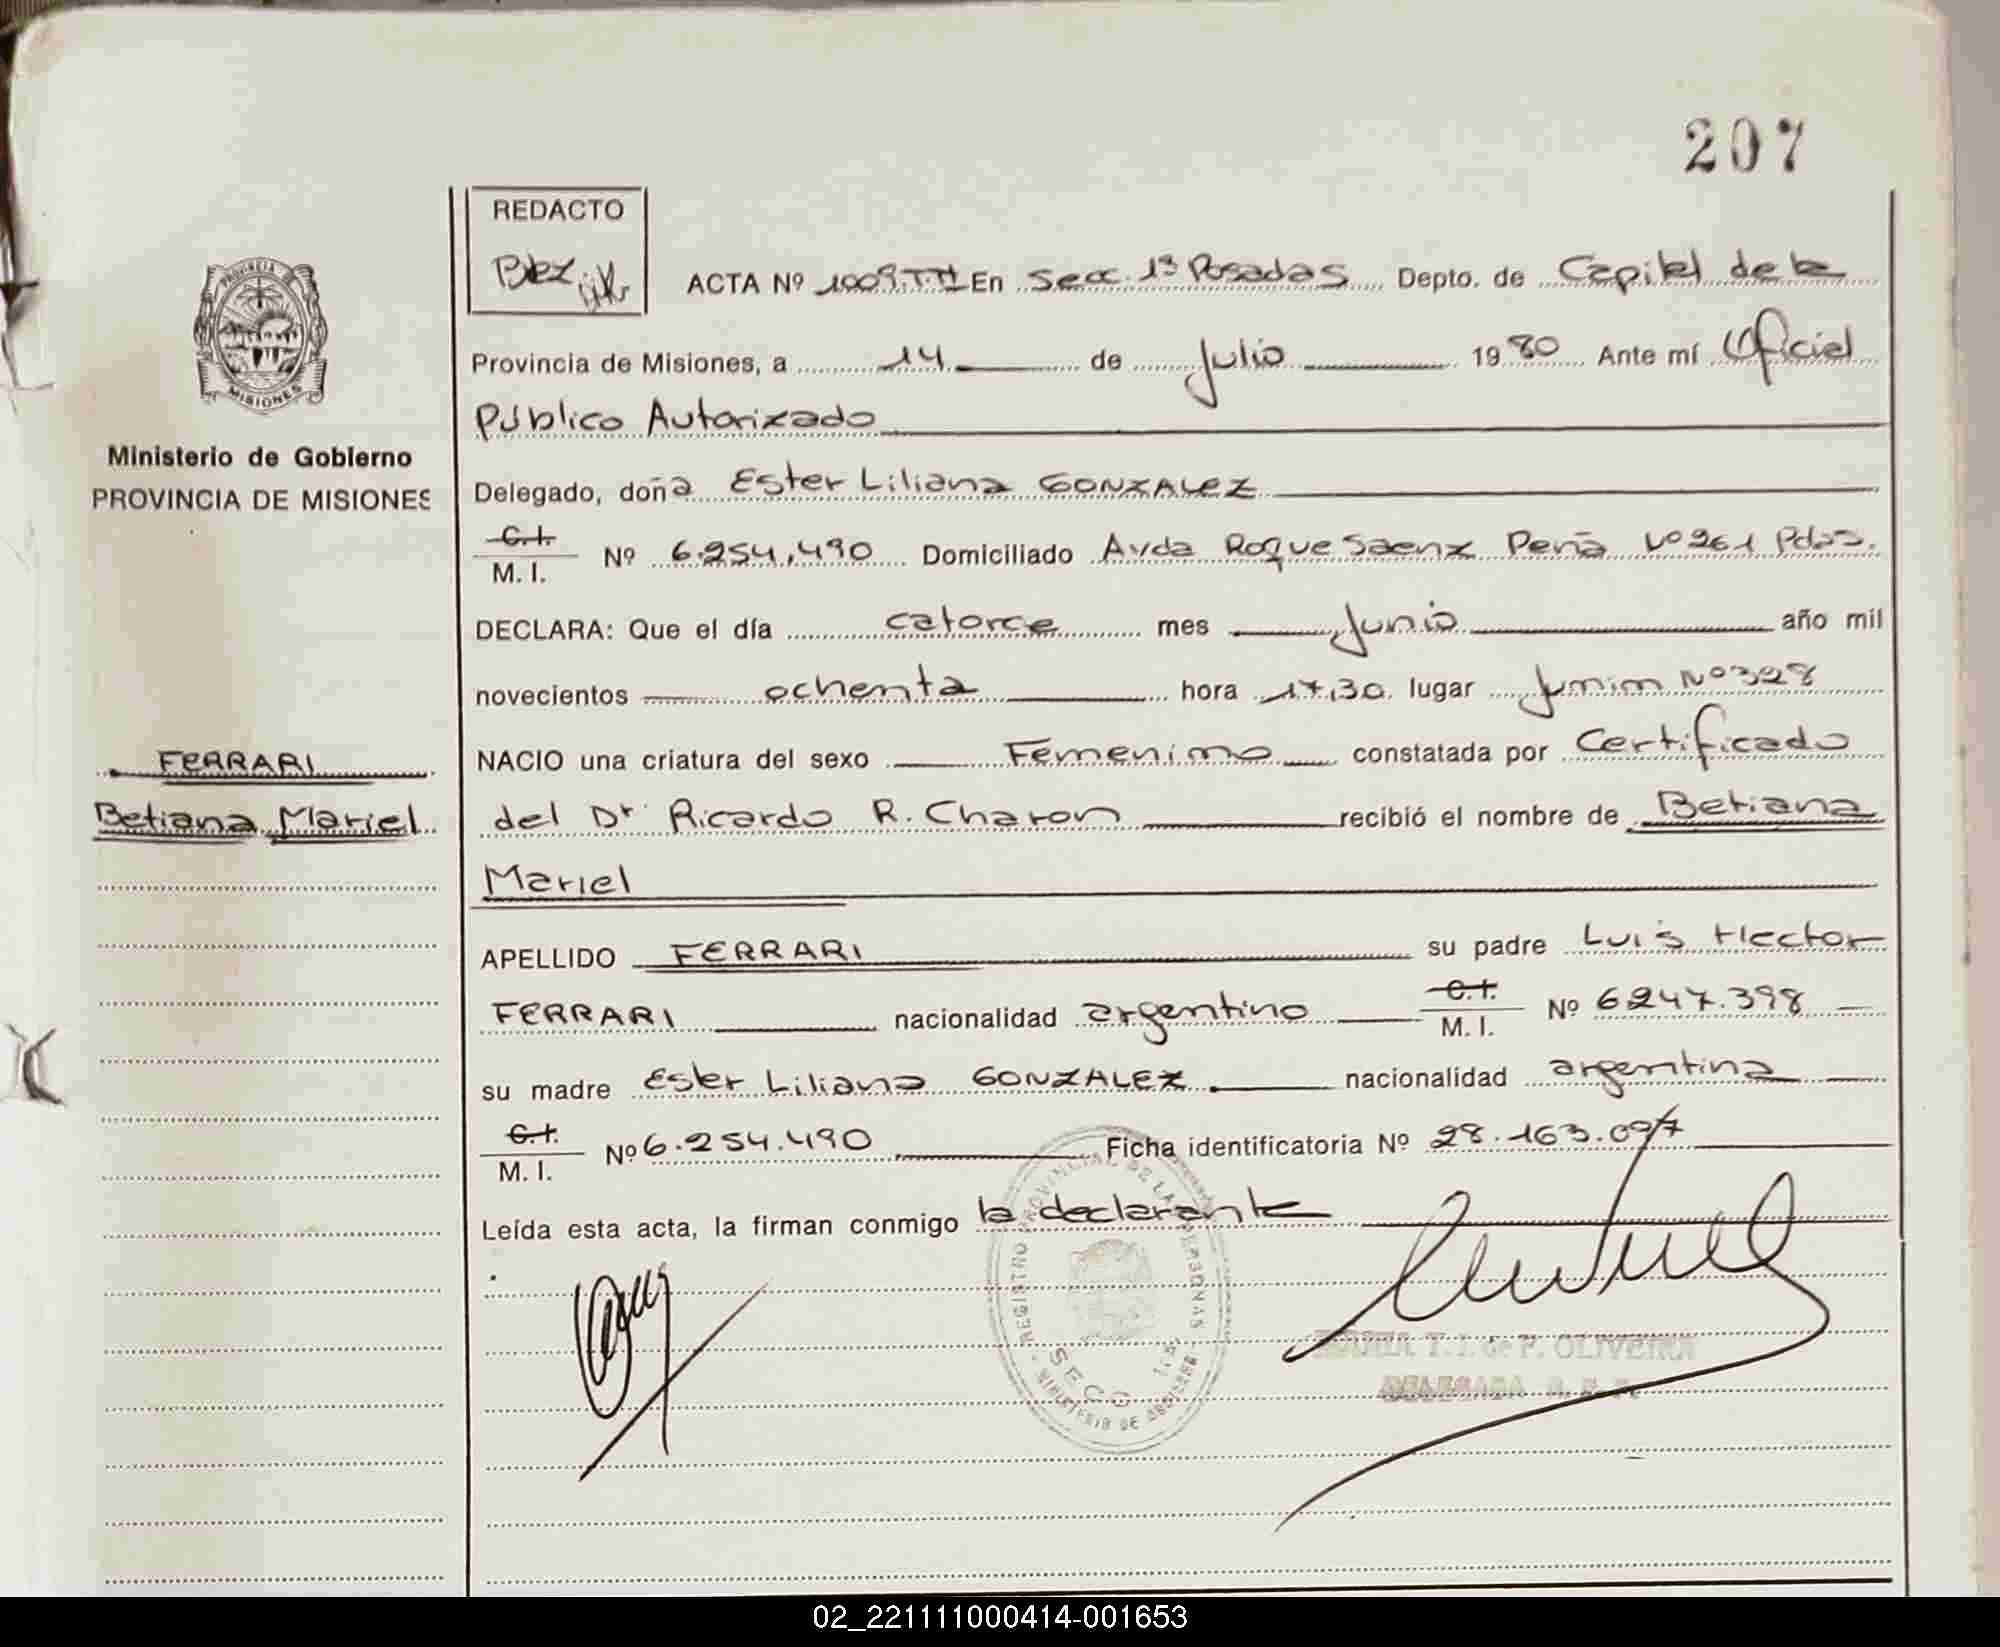 207
REDACTO
ACTA Nº 1009.T.II En Secc. 1ª Posadas Depto. de Capital de la
Provincia de Misiones, a 14 de Julio 1980 Ante mí Oficial
Público Autorizado
Delegado, doña Ester Liliana GONZALEZ
C.I.
M. I. Nº 6.254.490 Domiciliado Avda Roque Saenz Peña Nº 261 Pdas.
DECLARA: Que el día catorce mes Junio año mil
novecientos ochenta hora 17,30 lugar Junin Nº 328
NACIO una criatura del sexo Femenino constatada por Certificado
del Dr Ricardo R. Charon recibió el nombre de Betiana
Mariel
APELLIDO FERRARI su padre Luis Hector
FERRARI nacionalidad argentino C.I.
M. I. Nº 6247.398
su madre Ester Liliana GONZALEZ nacionalidad argentina
C.I.
M. I. Nº 6.254.490 Ficha identificatoria Nº 28.163.097
Leída esta acta, la firman conmigo la declarante
PROVINCIA
MISIONES
Ministerio de Gobierno
PROVINCIA DE MISIONES
FERRARI
Betiana Mariel
REGISTRO PROVINCIAL DE LAS PERSONAS
SECC
MINISTERIO DE GOBIERNO
MARIA T. I. de F. OLIVEIRA
DELEGADA
02_221111000414-001653